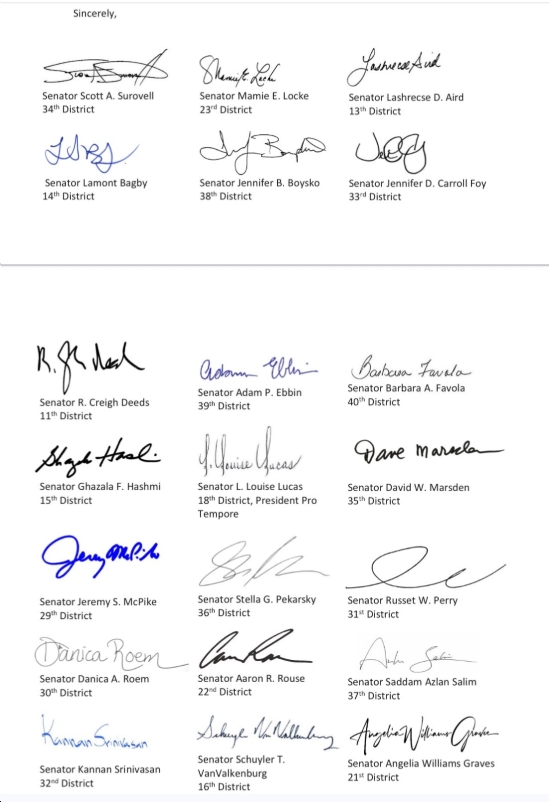 Sincerely,
Senator Scott A. Surovell
34th District
Senator Mamie E. Locke
23rd District
Lashrecse Aird
Senator Lashrecse D. Aird
13th District
Senator Lamont Bagby
14th District
Senator Jennifer B. Boysko
38th District
Senator Jennifer D. Carroll Foy
33rd District
Senator R. Creigh Deeds
11th District
Adam Ebbin
Senator Adam P. Ebbin
39th District
Barbara Favola
Senator Barbara A. Favola
40th District
Senator Ghazala F. Hashmi
15th District
L. Louise Lucas
Senator L. Louise Lucas
18th District, President Pro
Tempore
Dave Marsden
Senator David W. Marsden
35th District
Jeremy McPike
Senator Jeremy S. McPike
29th District
Senator Stella G. Pekarsky
36th District
Senator Russet W. Perry
31st District
Danica Roem
Senator Danica A. Roem
30th District
Senator Aaron R. Rouse
22nd District
Senator Saddam Azlan Salim
37th District
Kannan Srinivasan
Senator Kannan Srinivasan
32nd District
Schuyler VanValkenburg
Senator Schuyler T.
VanValkenburg
16th District
Angelia Williams Graves
Senator Angelia Williams Graves
21st District